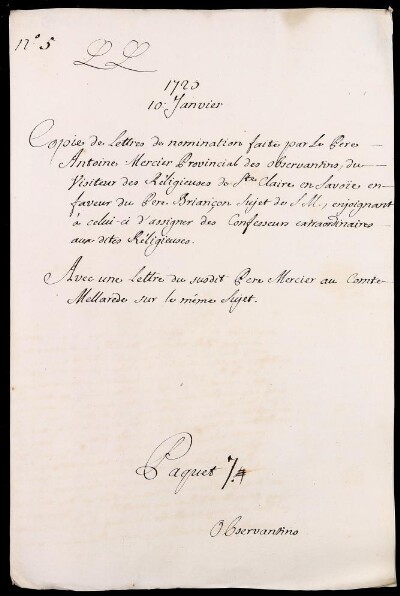 n.° 5
LL
1723
10. Janvier
Copie de Lettres de nomination faite par Le Pere
Antoine Mercier Provincial des Observantins, du
Visiteur des Réligieuses de Ste Claire en Savoie en
faveur du Pere Briançon Sujet de S. M., enjoignant
à celui-ci d'assigner des Confesseurs extraordinaires
aux dites Réligieuses.
Avec une Lettre du susdit Pere Mercier au Comte
Mellarede sur le même Sujet.
Paquet 7.
Observantins